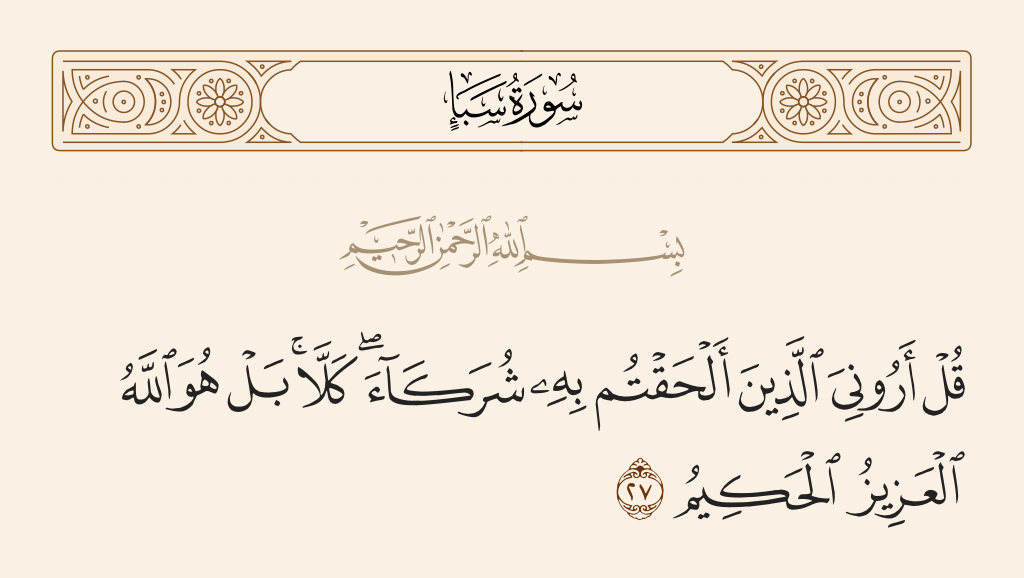 سُورَةُ سَبَإٍ
بِسْمِ ٱللَّهِ ٱلرَّحْمَٰنِ ٱلرَّحِيمِ
قُلْ أَرُونِىَ ٱلَّذِينَ أَلْحَقْتُم بِهِۦ شُرَكَآءَ ۖ كَلَّا ۚ بَلْ هُوَ ٱللَّهُ
ٱلْعَزِيزُ ٱلْحَكِيمُ ٢٧